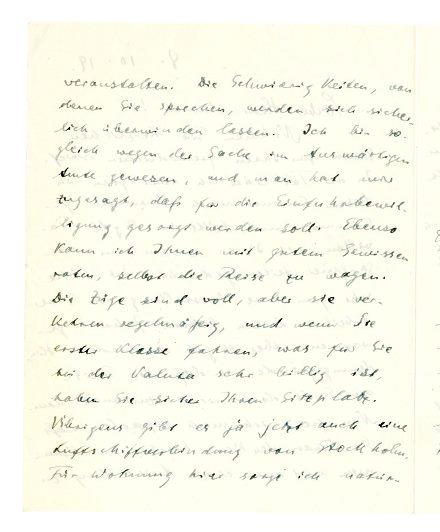 veranstalten. Die Schwierigkeiten, von
denen Sie sprechen, werden sich sicher-
lich überwinden lassen. Ich bin so-
gleich wegen der Sache im Auswärtigen
Amte gewesen, und man hat mir
zugesagt, daß für die Einfuhrbewil-
ligung gesorgt werden soll. Ebenso
kann ich Ihnen mit gutem Gewissen
raten, selbst die Reise zu wagen.
Die Züge sind voll, aber sie ver-
kehren regelmäßig, und wenn Sie
erster Klasse fahren, was für Sie
bei der Valuta sehr billig ist,
haben Sie sicher Ihren Sitzplatz.
Übrigens gibt es ja jetzt auch eine
Luftschiffverbindung von Stockholm.
Für Wohnung hier sorge ich natür-